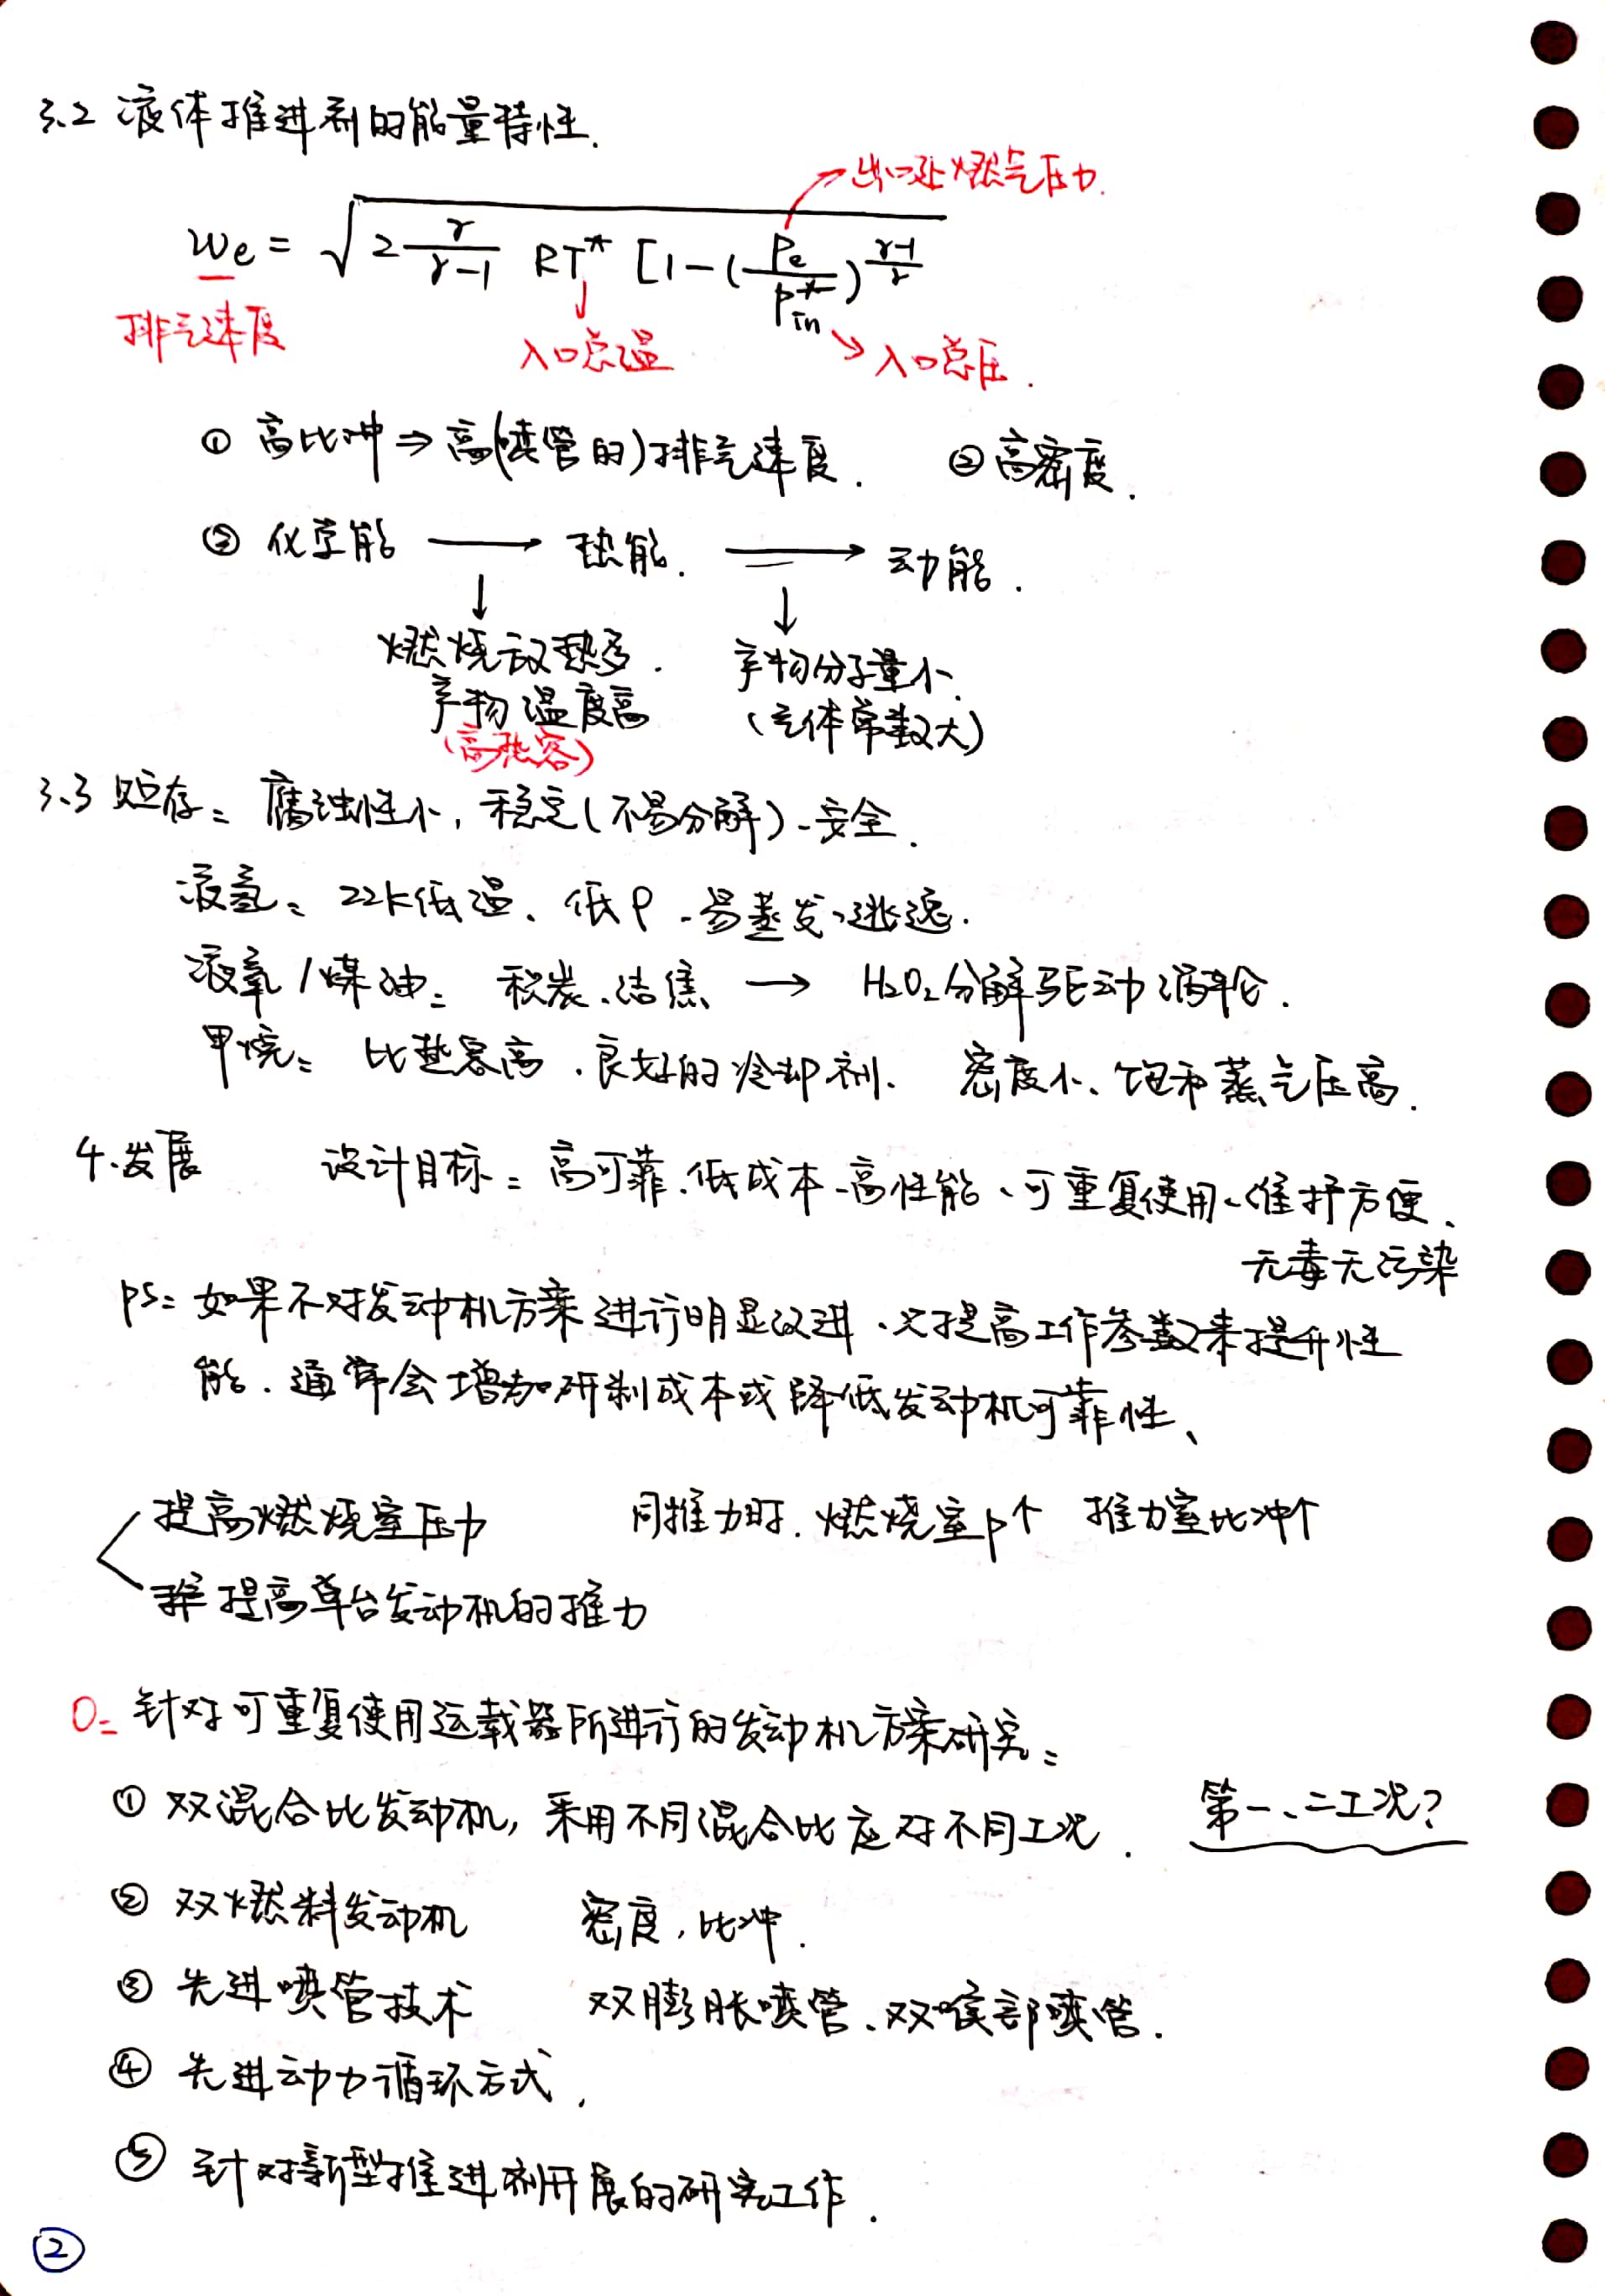 3.2 液体推进剂的能量特性.
→出口处燃气压力.
We = √2 γ/(γ-1) RT* [1-(Pe/P*in)^((γ-1)/γ)
排气速度
↓ 入口总温
↘ 入口总压.
① 高比冲⇒高(喷管的)排气速度. ② 高密度.
② 化学能 → 热能. → 动能.
↓ ↓
燃烧放热多. 产物分子量小.
产物温度高 (气体常数大)
(高热容)
3.3 贮存: 腐蚀性小, 稳定(不易分解)、安全.
液氢: 22K低温、低ρ、易蒸发、逃逸.
液氧/煤油: 积炭、结焦 → H₂O₂分解驱动涡轮.
甲烷: 比热容高、良好的冷却剂、 密度小、饱和蒸气压高.
4.发展 设计目标: 高可靠、低成本、高性能、可重复使用、维护方便、
无毒无污染
PS: 如果不对发动机方案进行明显改进、只提高工作参数来提升性
能、通常会增加研制成本或降低发动机可靠性、
提高燃烧室压力 同推力时、燃烧室p↑ 推力室比冲↑
提高单台发动机的推力
0: 针对可重复使用运载器所进行的发动机方案研究:
① 双混合比发动机, 采用不同混合比应对不同工况. 第一、二工况?
② 双燃料发动机 密度, 比冲.
③ 先进喷管技术 双膨胀喷管、双喉部喷管.
④ 先进动力循环方式.
⑤ 针对新型推进剂开展的研究工作.
②